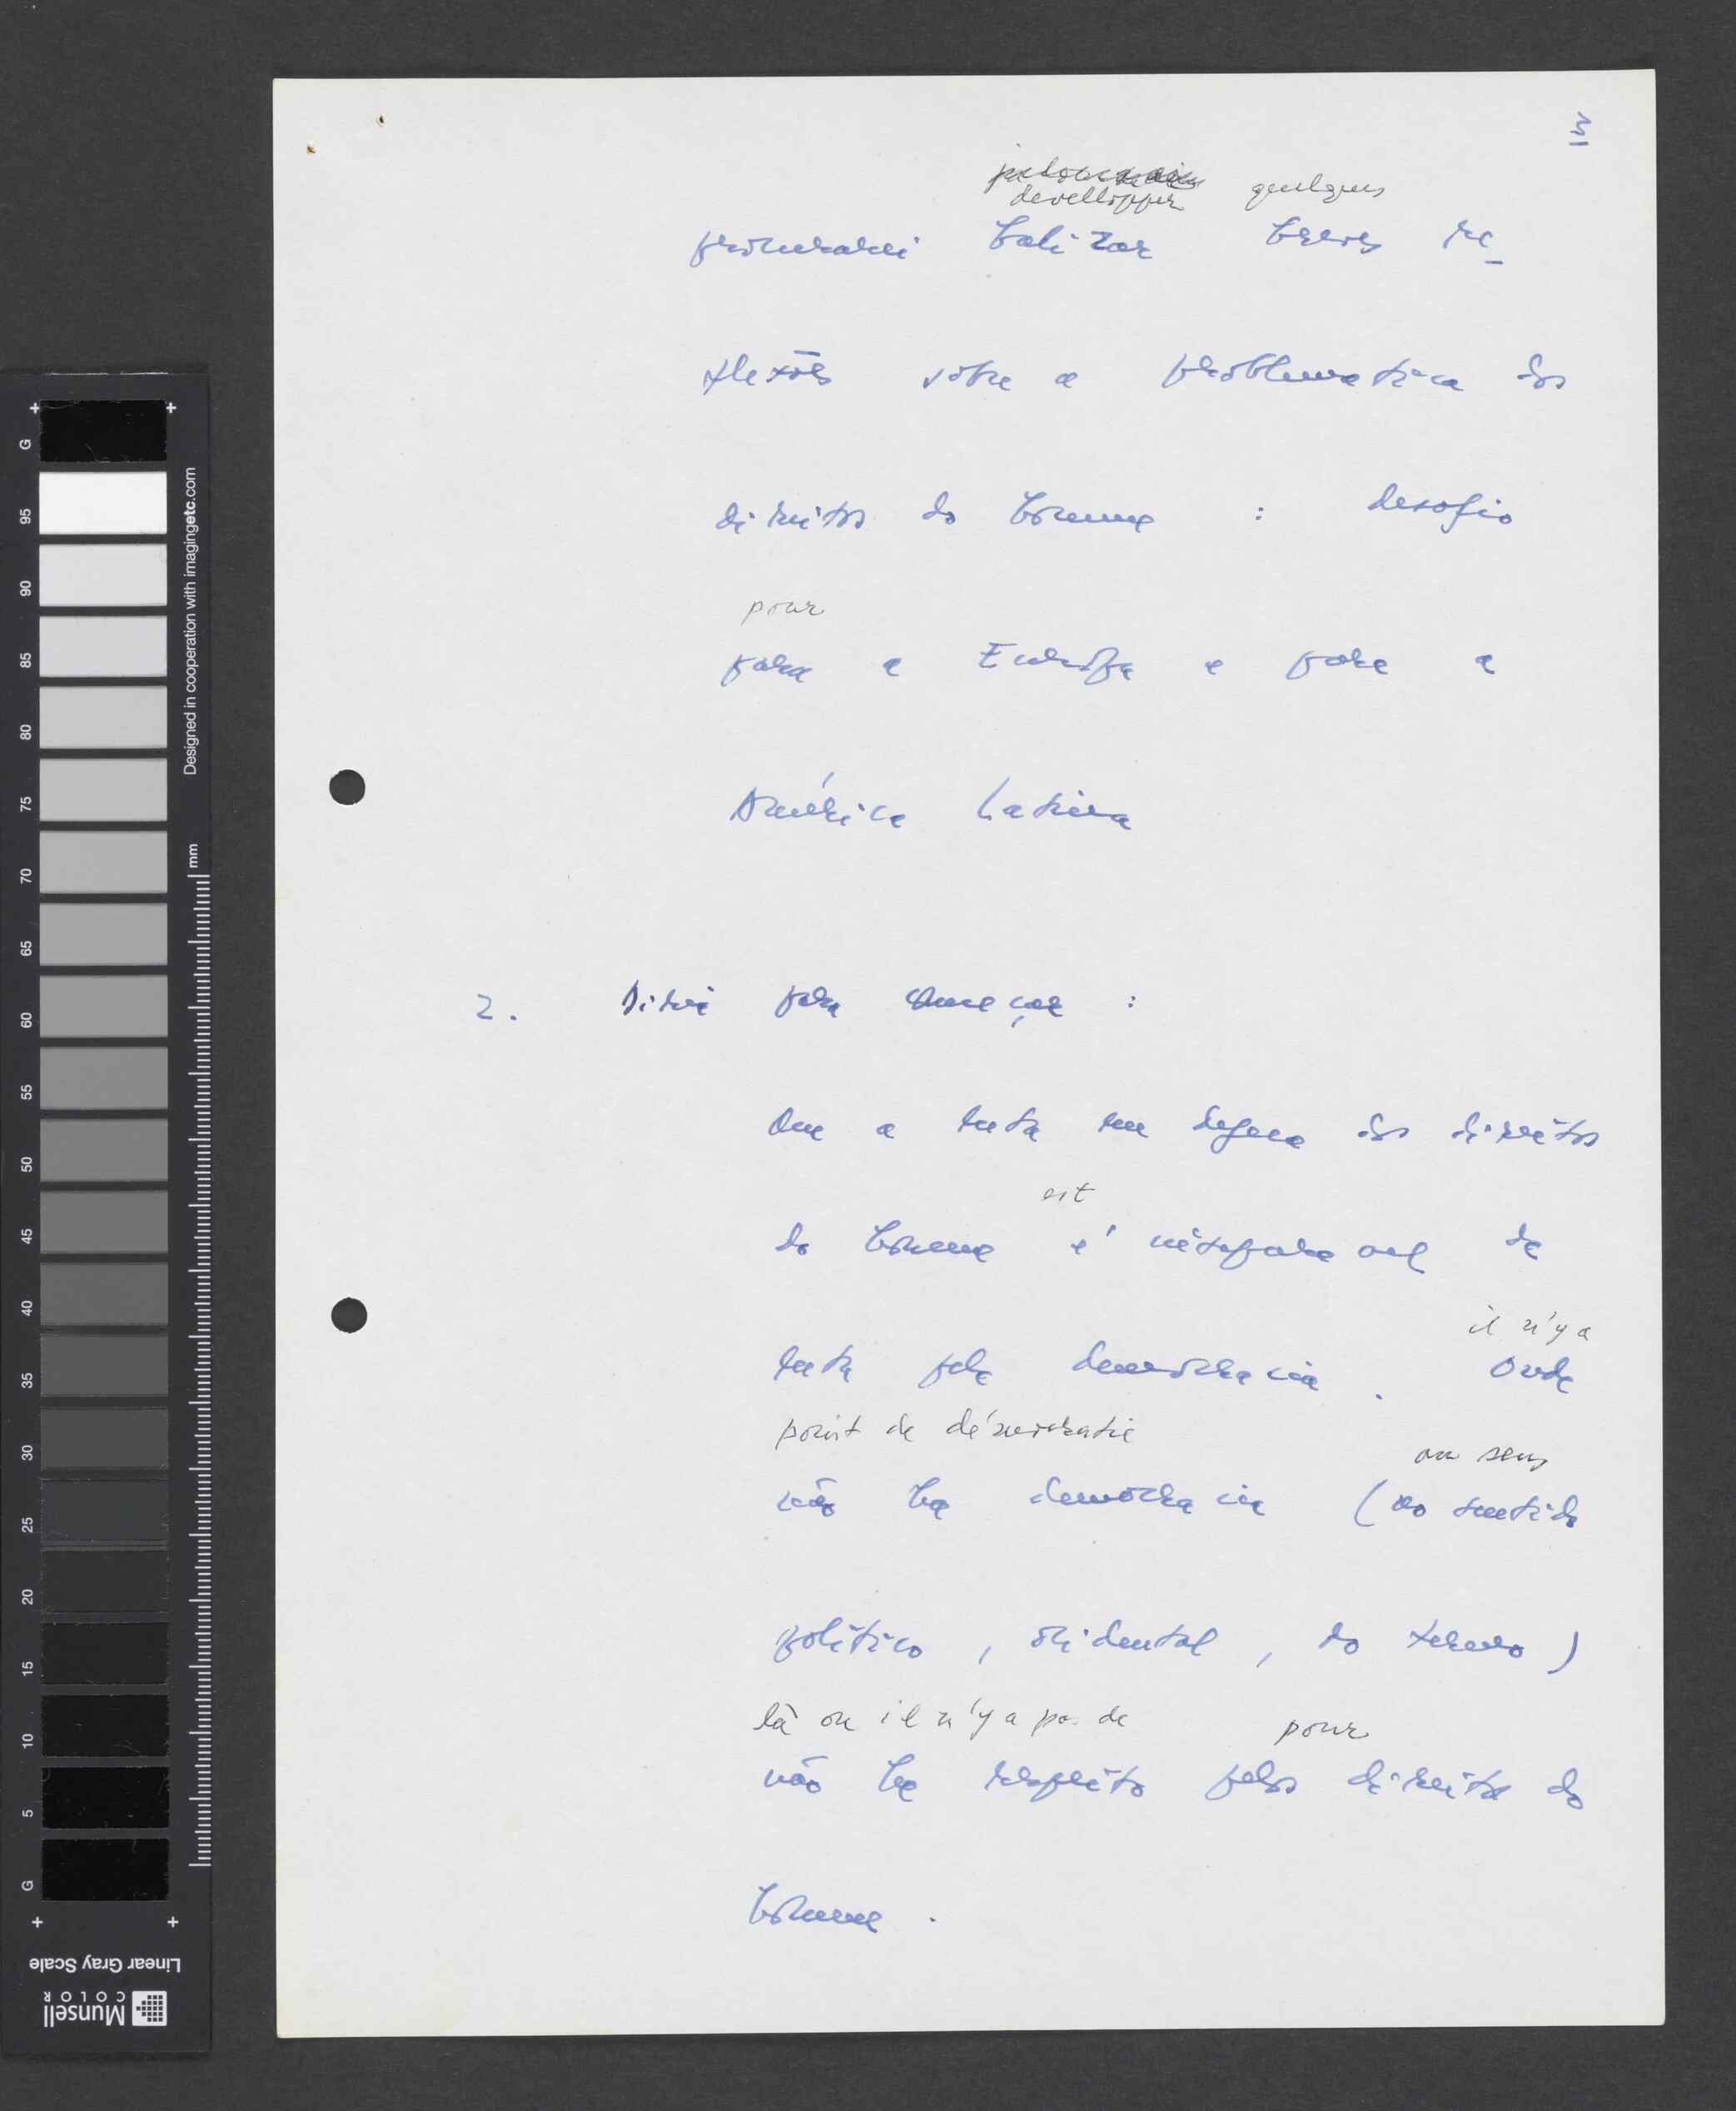 3
developper quelques
procurarei balizar breves re_
flexões sobre a problemática dos
direitos do homem : desafio
pour
para a Europa e para a
América Latina
2. Direi para começar :
Que a luta em defesa dos direitos
est
do homem é inseparável da
il n'y a
luta pela democracia . Onde
point de démocratie
au sens
não há democracia (no sentido
político , ocidental , do termo )
là ou il n'y a pas de pour
não há respeito pelos direitos do
homem .
G 95 90 85 80 75 70 65 60 55 50 45 40 35 30 25 20 15 10 5 G
mm
Designed in cooperation with imagingetc.com
Linear Gray Scale
Munsell
COLOR